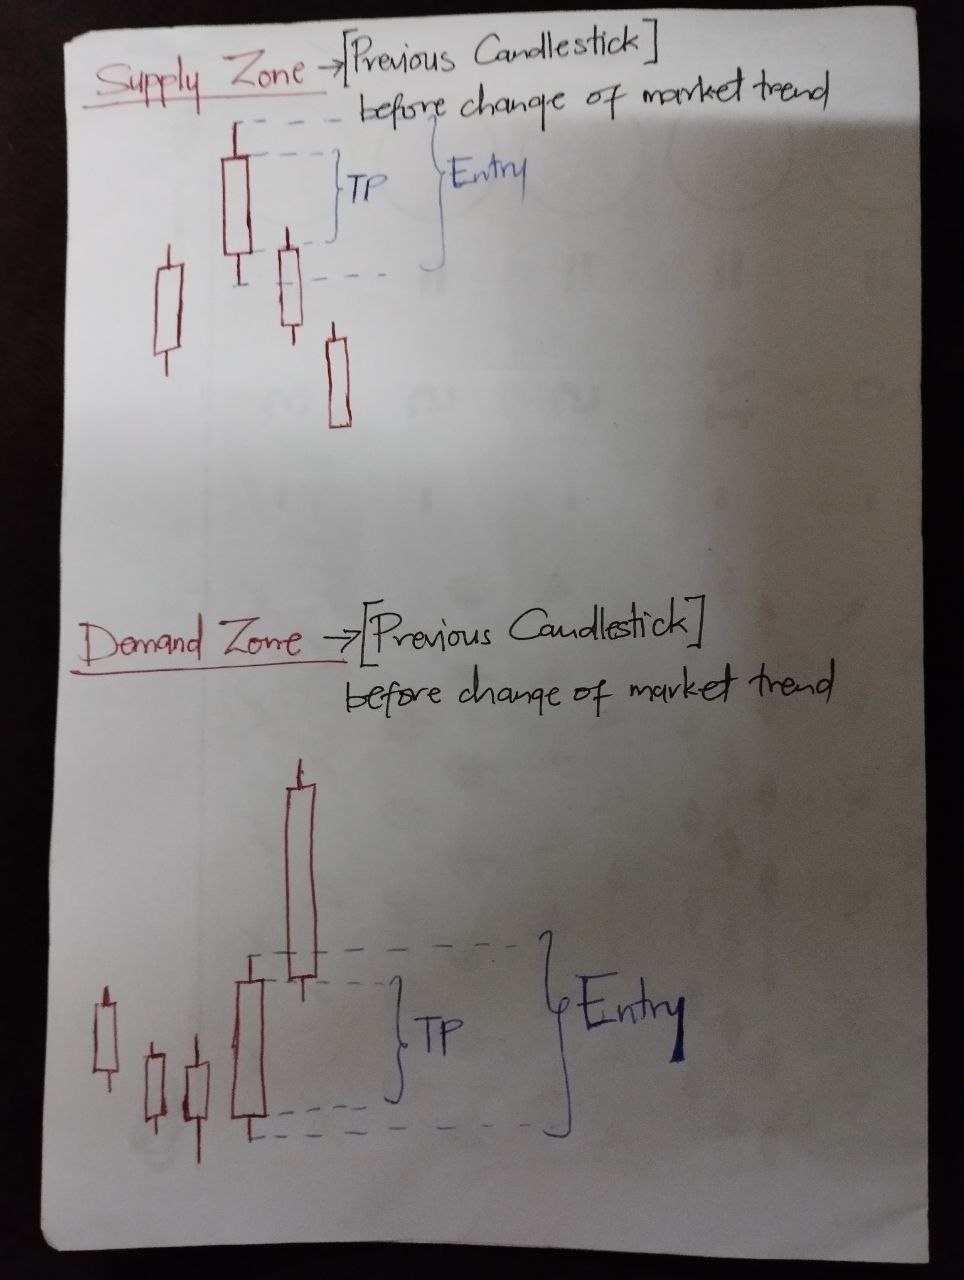 Supply Zone →[Previous Candlestick]
before change of market trend
TP
Entry
Demand Zone →[Previous Candlestick]
before change of market trend
TP
Entry